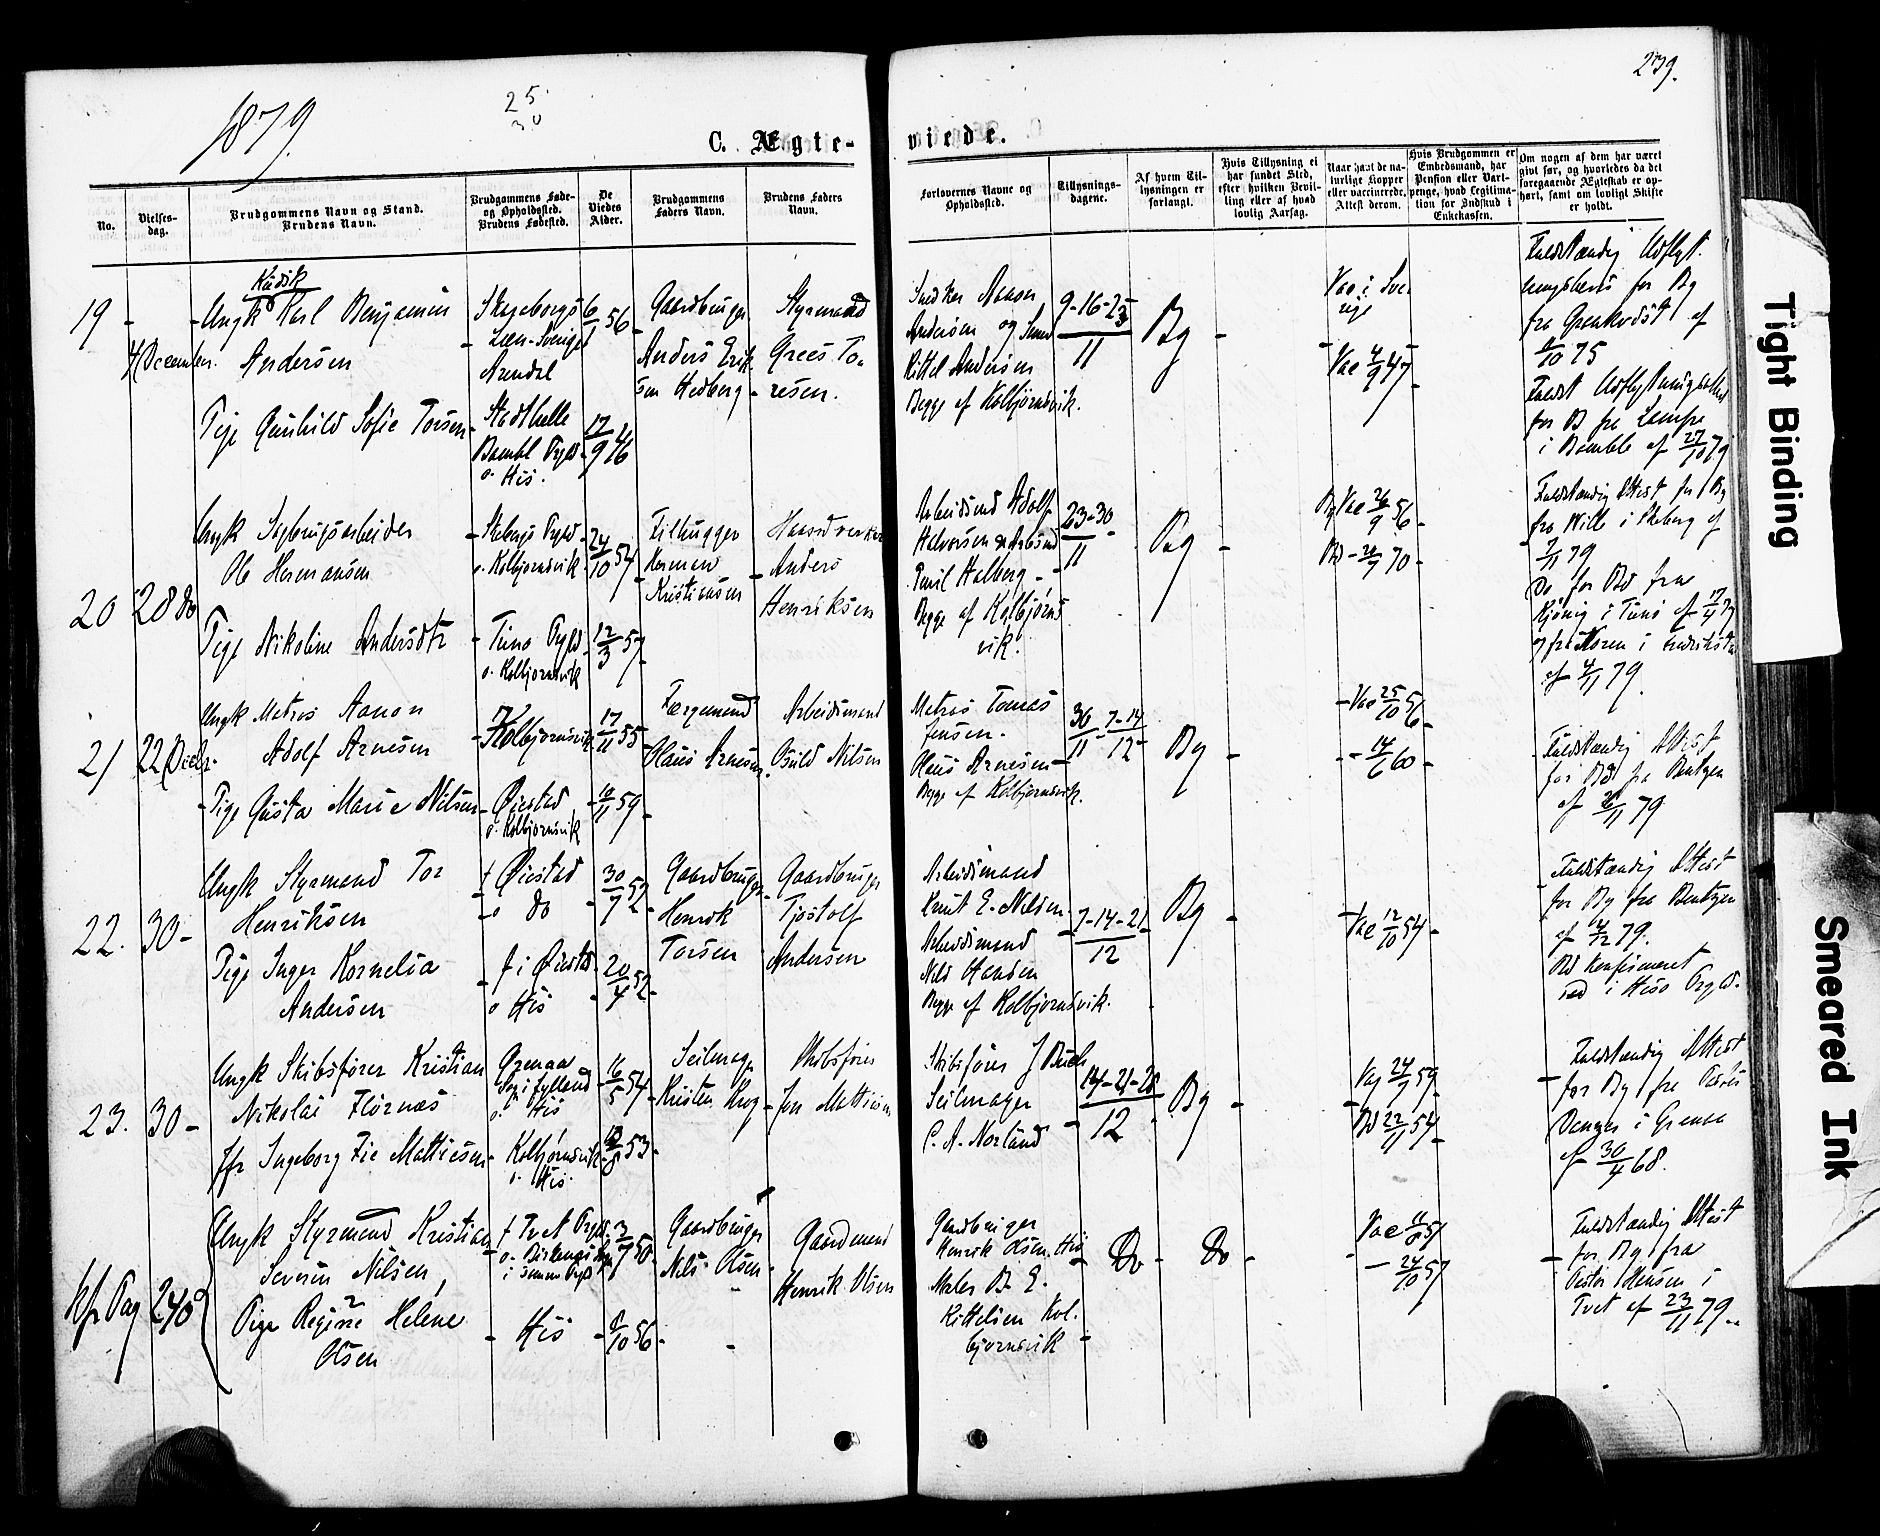 1879.
25
30
239.
C. Ægte-
viede.
No.
Vielses-
dag.
Brudgommens Navn og Stand.
Brudens Navn.
Brudgommens Føde-
og Opholdssted.
Brudens Fødested.
De
Viedes
Alder.
Brudgommens
Faders Navn.
Brudens Faders
Navn.
Forlovernes Navne og
Opholdssted.
Tillysnings-
dagene.
Af hvem Til-
lysningen er
forlangt.
Hvis Tillysning ei
har fundet Sted,
efter hvilken Bevil-
ling eller af hvad
lovlig Aarsag.
Naar havt de na-
turlige Kopper
eller vaccinerede.
Attest derom.
Hvis Brudgommen er
Embedsmand, har
Pension eller Vart-
penge, hvad Legitima-
tion for Indskud i
Enkekassen.
Om nogen af dem har været
givt før, og hvorledes da det
foregaaende Ægteskab er op-
hørt, samt om lovligt Skifte
er holdt.
19
4 December.
Ungk Karl Benjamin
Andersen
Pige Gunhild Sofie Torsen
Skaraborgs
Læn-Sverige
Arendal
Stathelle
Bambl Pgld
o. His.
6/1 56
17/9 46
Gaardbruger
Anders Erik-
sen Hedberg
Styrmand
Grees To-
resen.
Snedker Aanon
Andersen og
Kittel Andersen
Begge af Kolbjørnsvik.
9-16-23/11
Bg
Vac i Sve-
rige
Vac 4/9 47
Fuldstændig Udflyt-
ningsbevis for Bg
fra
11/10 75
Fuldst Udflytningsattest
for B fra
i Bamble af 27/10 79
20
28 do
Ungk Sagbrugsarbeider
Ole Hermansen
Pige Nikoline Andersdtr
Skebergs Pgld
o. Kolbjørnsvik
Tunø Pgld
o. Kolbjørnsvik
24/10 54
12/3 57
Filhugger
Herman
Kristiansen
Haandverker
Anders
Henriksen
Arbeidsmd Adolf
Halvorsen & Arbsmd
Emil Halberg
Begge af Kolbjørns
vik.
23-30/11
Bg Vac 26/9 56
Bd
70
Fuldstændig Attest for Bg
fra Wille i Skeberg af
7/11 79
Do for Bd fra
i Tunø af
i Fredrikstad
af 4/11 79.
21
22 Decbr.
Ungk Matros Aanon
Adolf Arnesen
Pige Gusta Marie Nilsen
Kolbjørnsvik
Øiestad
o. Kolbjørnsvik
17/11 55
10/11 59
Færgemand
Olaus Arnesen
Arbeidsmand
Osuld Nilsen
Matros Tomas
Jensen.
Olaus Arnesen
Begge af Kolbjørnsvik.
30/11 7-14/12
Bg
Vac 25/10 56
14/6 60
Fuldstændig Attest
for Bd fra Bentzen
af
79
22.
30
Ungk Styrmand Tor
Henriksen
Pige Inger Kornelia
Andersen
f Øiestad
o do
f i Øiestad
o His
30/7 52
20/4 52
Gaardbruger
Henrik
Torsen
Gaardbruger
Tjostolf
Andersen
Arbeidsmand
Knut E. Nilsen
Arbeidsmand
Nils Hansen
Begge af Kolbjørnsvik.
7-14-21/12
Bg
Vac 12/10 54
Fuldstændig Attest
for Bg fra Bentzen
af 4/12 79.
Bd Konfirmeret
ved i Hisø Prgld.
23.
30
Ungk Skibsfører Kristian
Nikolai Flørnæs
Jfr Ingeborg Fie Mathiesen
Grenaa
Sogn i Jylland
o. His
Kolbjørnsvik
o. His.
16/5 54
53
Seilmager
Kristen Krog
Skibsfører
Jon Mathiesen
Skibsfører J Buch
Seilmager
C. A. Norland
14-21-28/12
Bg
Vac 24/9 59
Bd 22/11 54
Fuldstændig Attest
for Bg fra Pastor
i Grenaa
af 30/4 68.
240
Ungk Styrmand Kristian
Severin Nilsen
Pige Regine Helene
Olsen
f Tvet Prgld
o. Birkenæs
i samme Prgld
His
3/7 50
8/10 56
Gaardbruger
Nils Olsen
Gaardmand
Henrik Olsen
Gaardbruger
Henrik Olsen His
Maler B. E.
Kittelsen Kol-
bjørnsvik
Do
Do
Vac
57
24/10 57
Fuldstændig Attest
for Bg fra
Pastor Hansen i
Tvet af 23/11 79.
Tight Binding
Smeared Ink